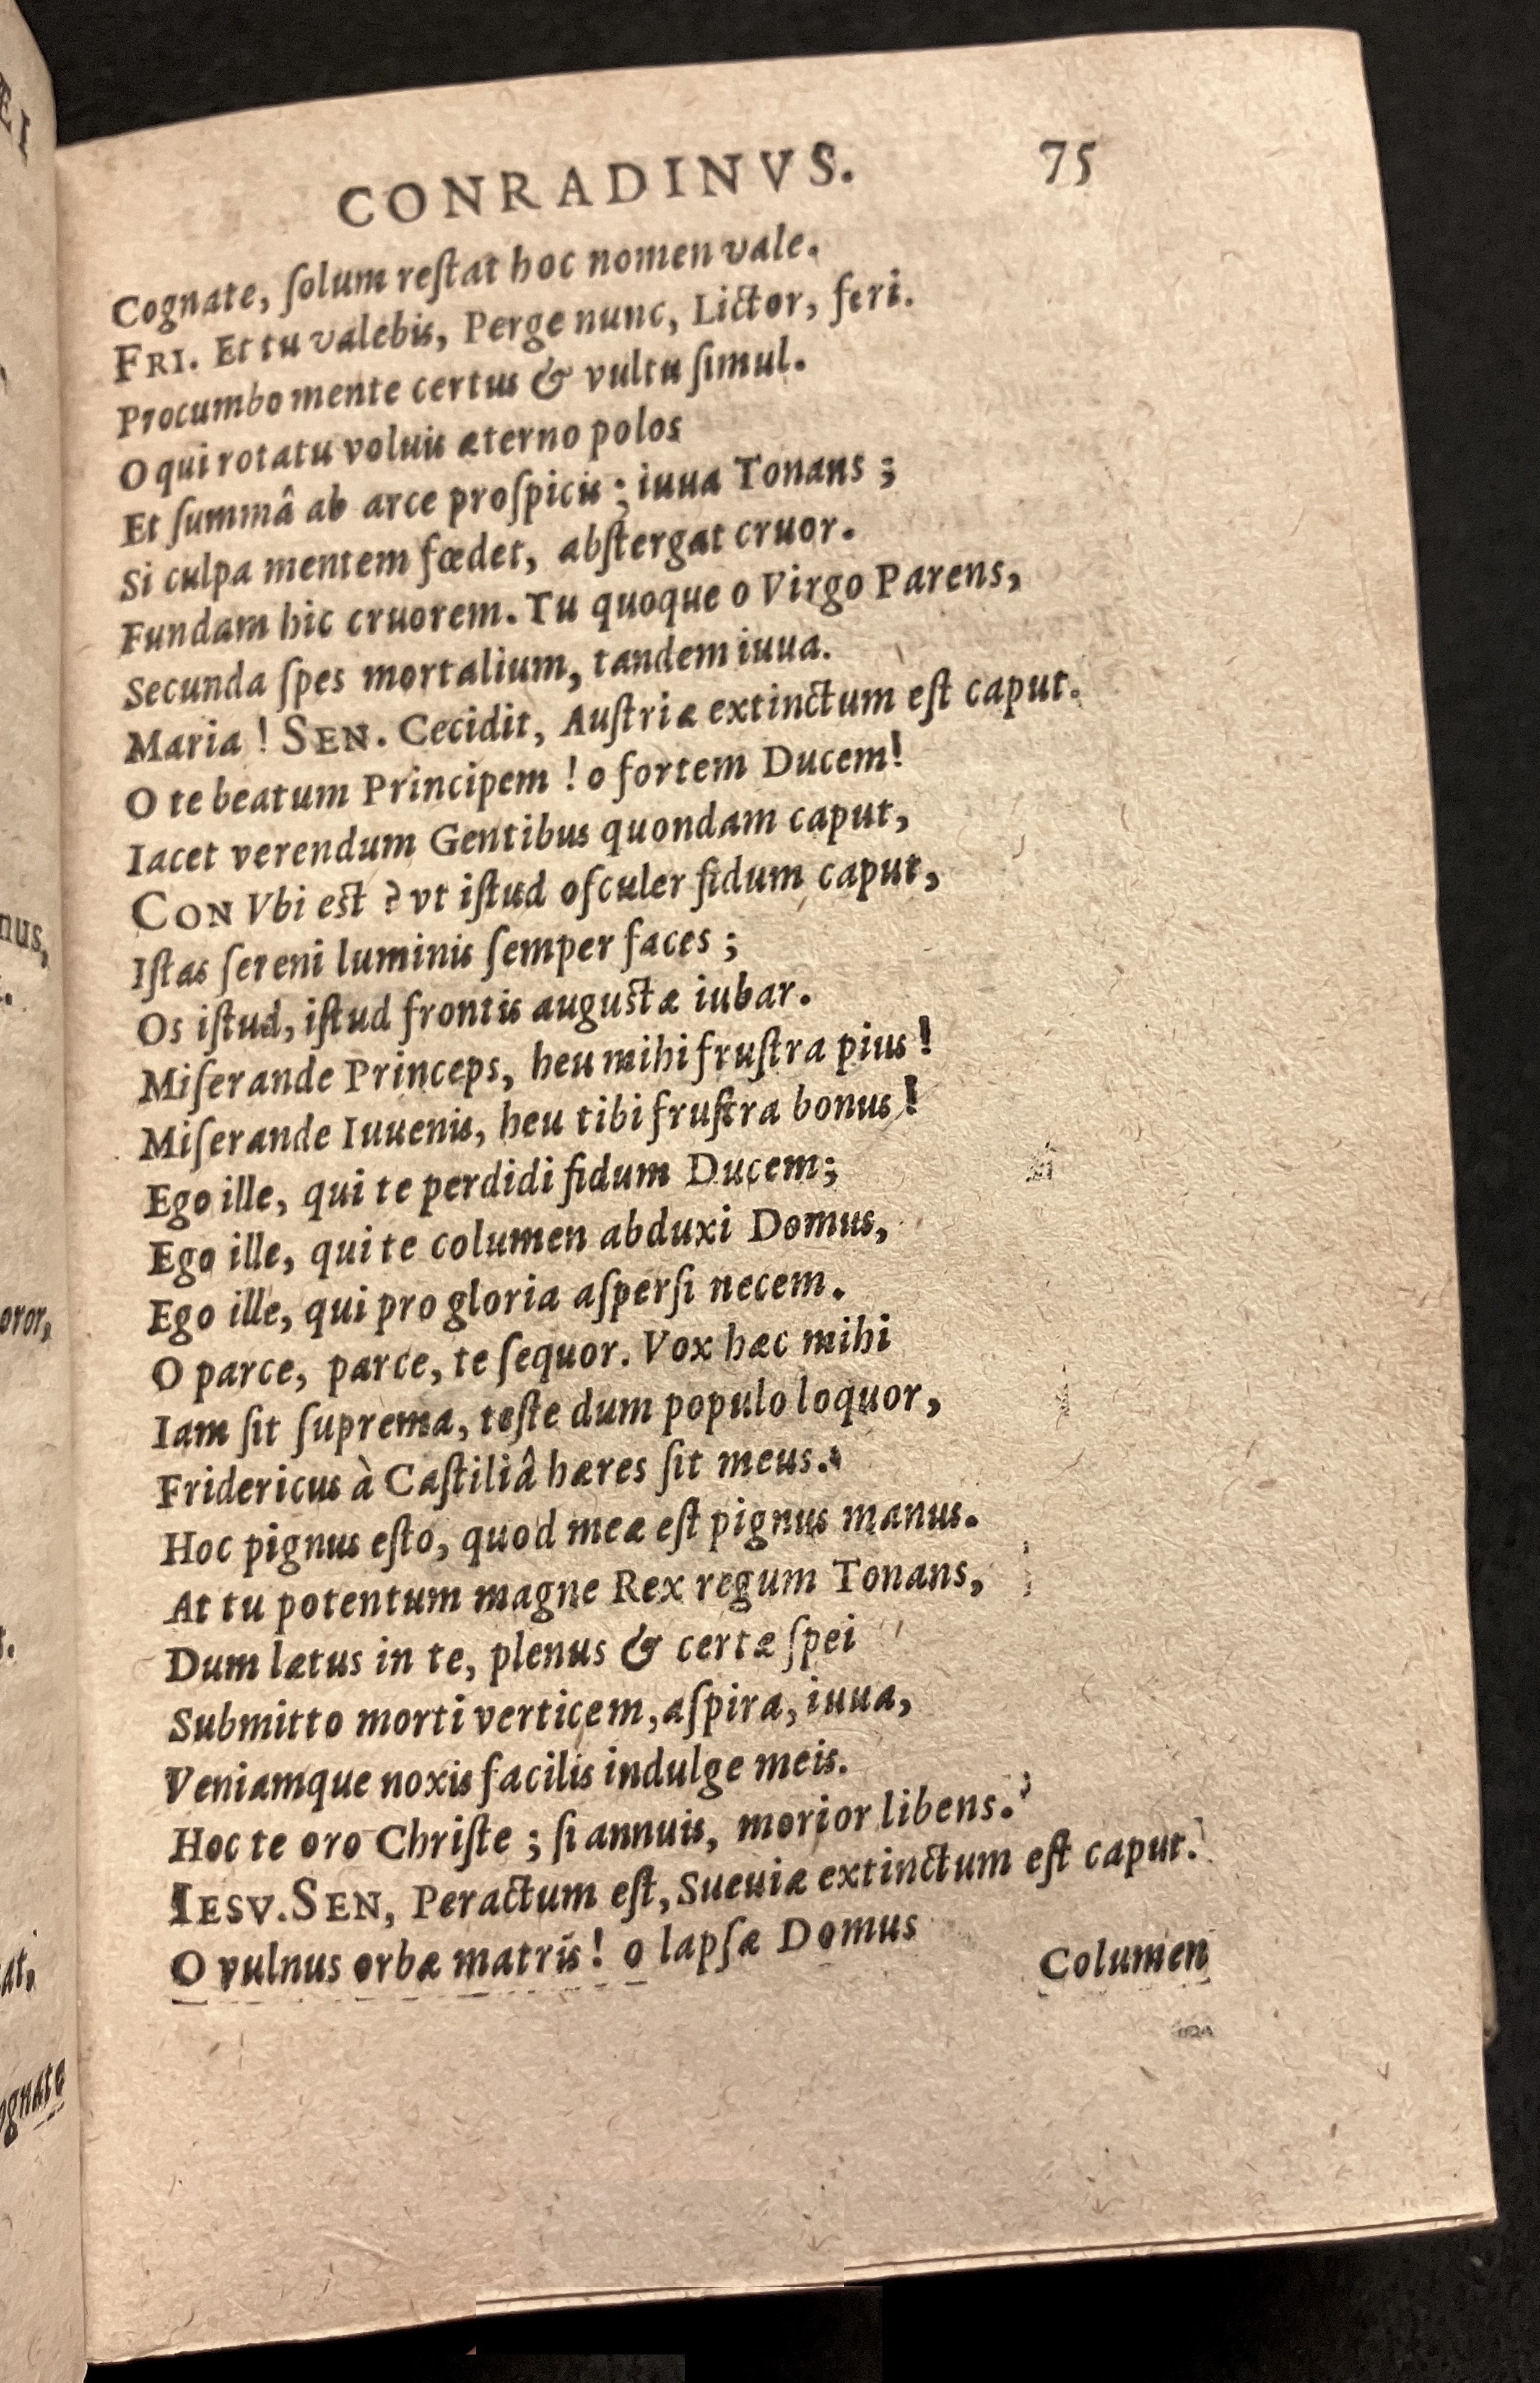 CONRADINVS. 75
Cognate, ſolum reſtat hoc nomen vale.
FRI. Et tu valebis, Perge nunc, Lictor, feri.
Procumbo mente certus & vultu ſimul.
O qui rotatu voluis æterno polos
Et ſummâ ab arce proſpicis; iuua Tonans;
Si culpa mentem fœdet, abſtergat cruor.
Fundam hic cruorem. Tu quoque o Virgo Parens,
Secunda ſpes mortalium, tandem iuua.
Maria! SEN. Cecidit, Auſtriæ extinctum eſt caput.
O te beatum Principem! o fortem Ducem!
Iacet verendum Gentibus quondam caput,
CON Vbi eſt? vt iſtud oſculer fidum caput,
Iſtas ſereni luminis ſemper faces;
Os iſtud, iſtud frontis auguſtæ iubar.
Miſerande Princeps, heu mihi fruſtra pius!
Miſerande Iuuenis, heu tibi fruſtra bonus!
Ego ille, qui te perdidi fidum Ducem;
Ego ille, qui te columen abduxi Domus,
Ego ille, qui pro gloria aſperſi necem.
O parce, parce, te ſequor. Vox hæc mihi
Iam ſit ſuprema, teſte dum populo loquor,
Fridericus à Caſtiliâ hæres ſit meus.
Hoc pignus eſto, quod meæ eſt pignus manus.
At tu potentum magne Rex regum Tonans,
Dum lætus in te, plenus & certæ ſpei
Submitto morti verticem, aſpira, iuua,
Veniamque noxis facilis indulge meis.
Hoc te oro Chriſte; ſi annuis, morior libens.
IESV. SEN, Peractum eſt, Sueuiæ extinctum eſt caput.
O vulnus orbæ matris! o lapſæ Domus
Columen
nus,
oror,
at,
ognate